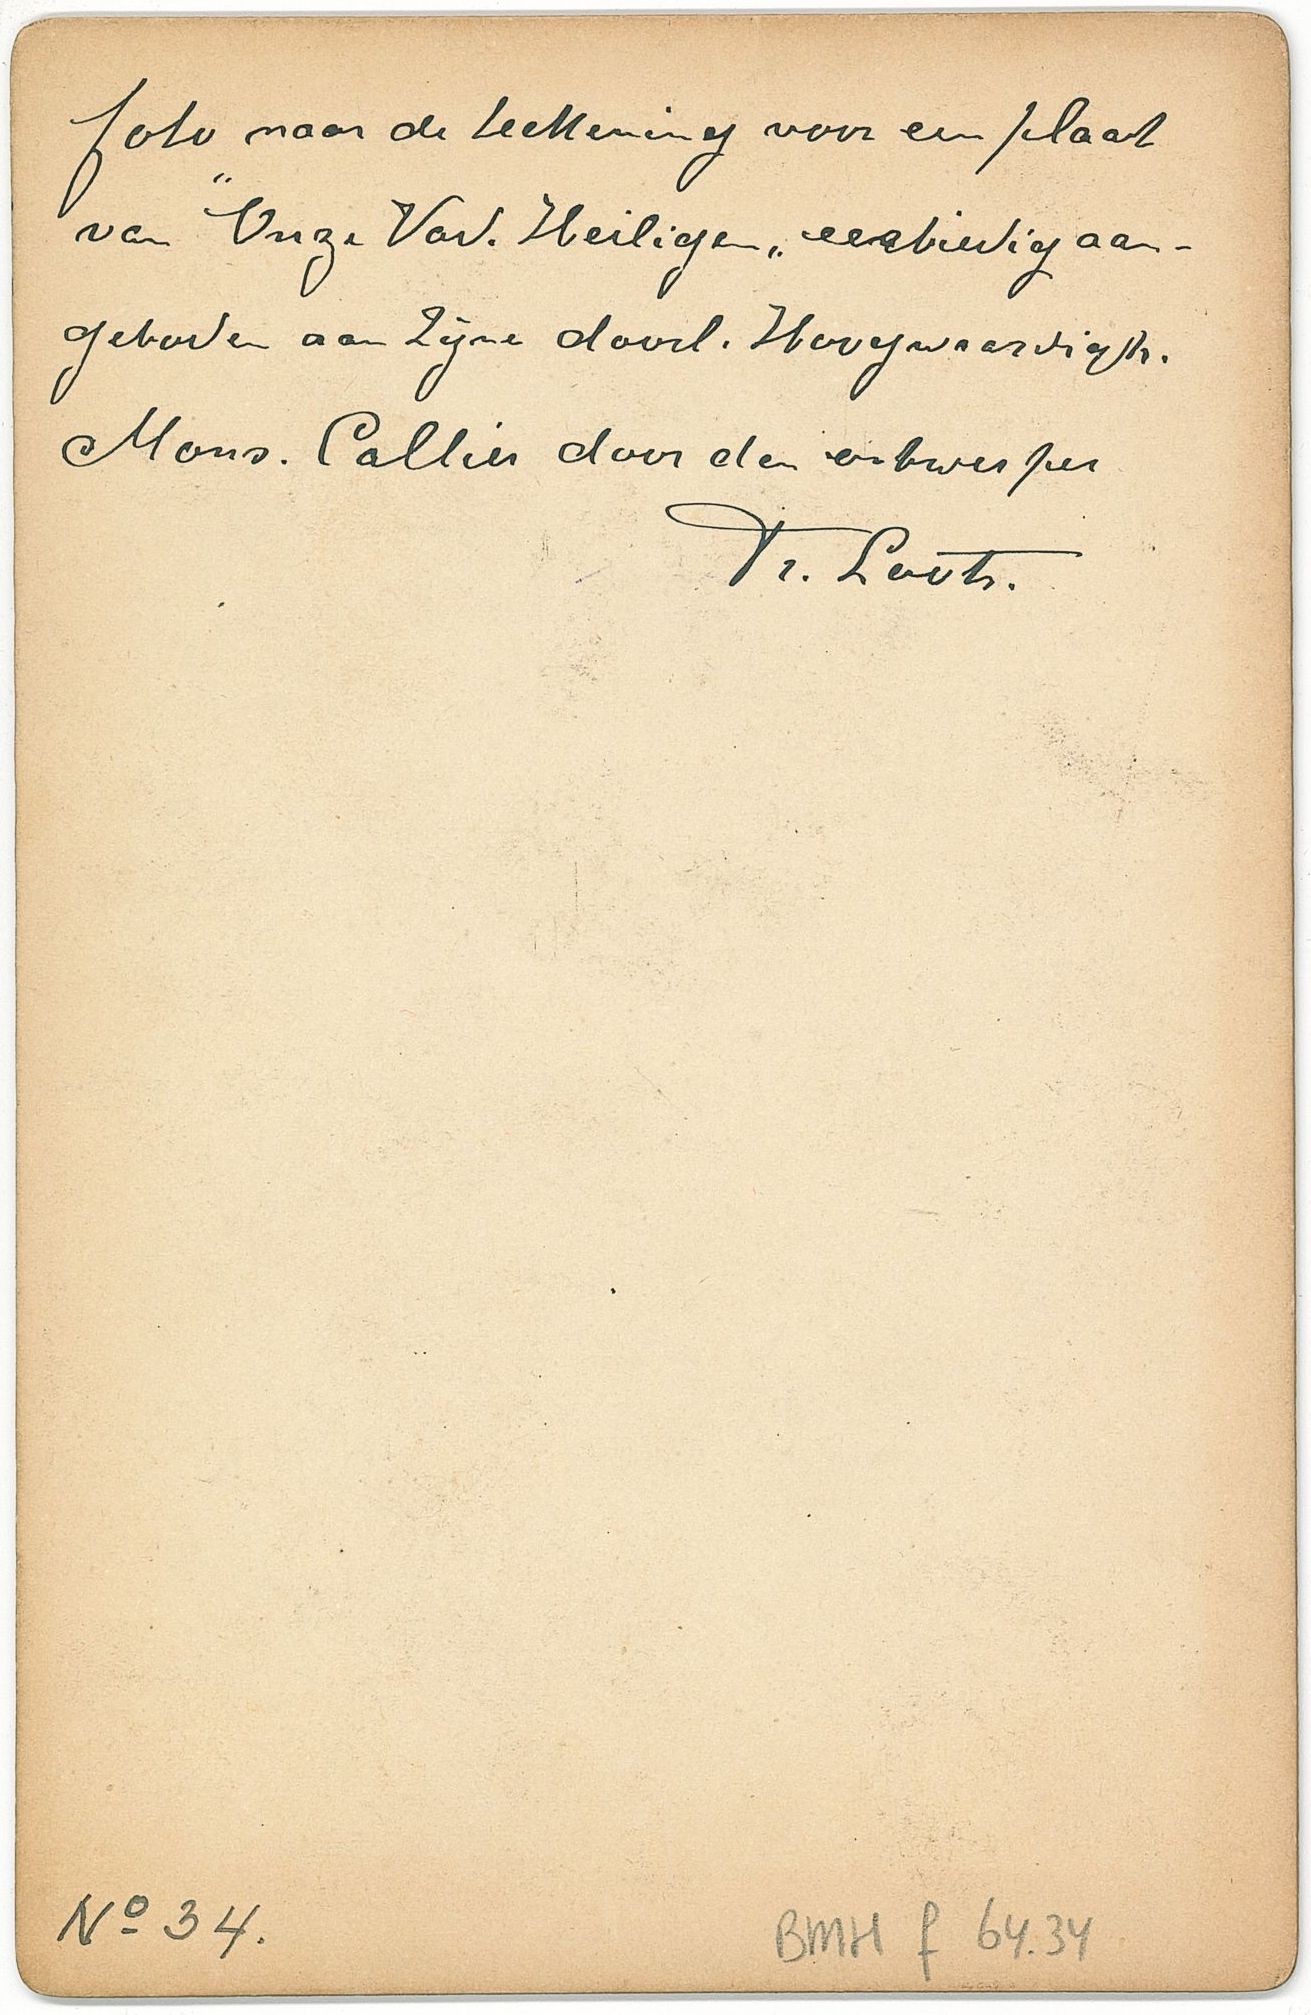 foto naar de teekening voor een plaat
van "Onze Vad. Heiligen„ eerbiedig aan-
geboden aan Zijne doorl. Hoogwaardigh.
Mons. Callier door den ontwerper
Fr. Loots.
Nº 34.
BMH f 64.34